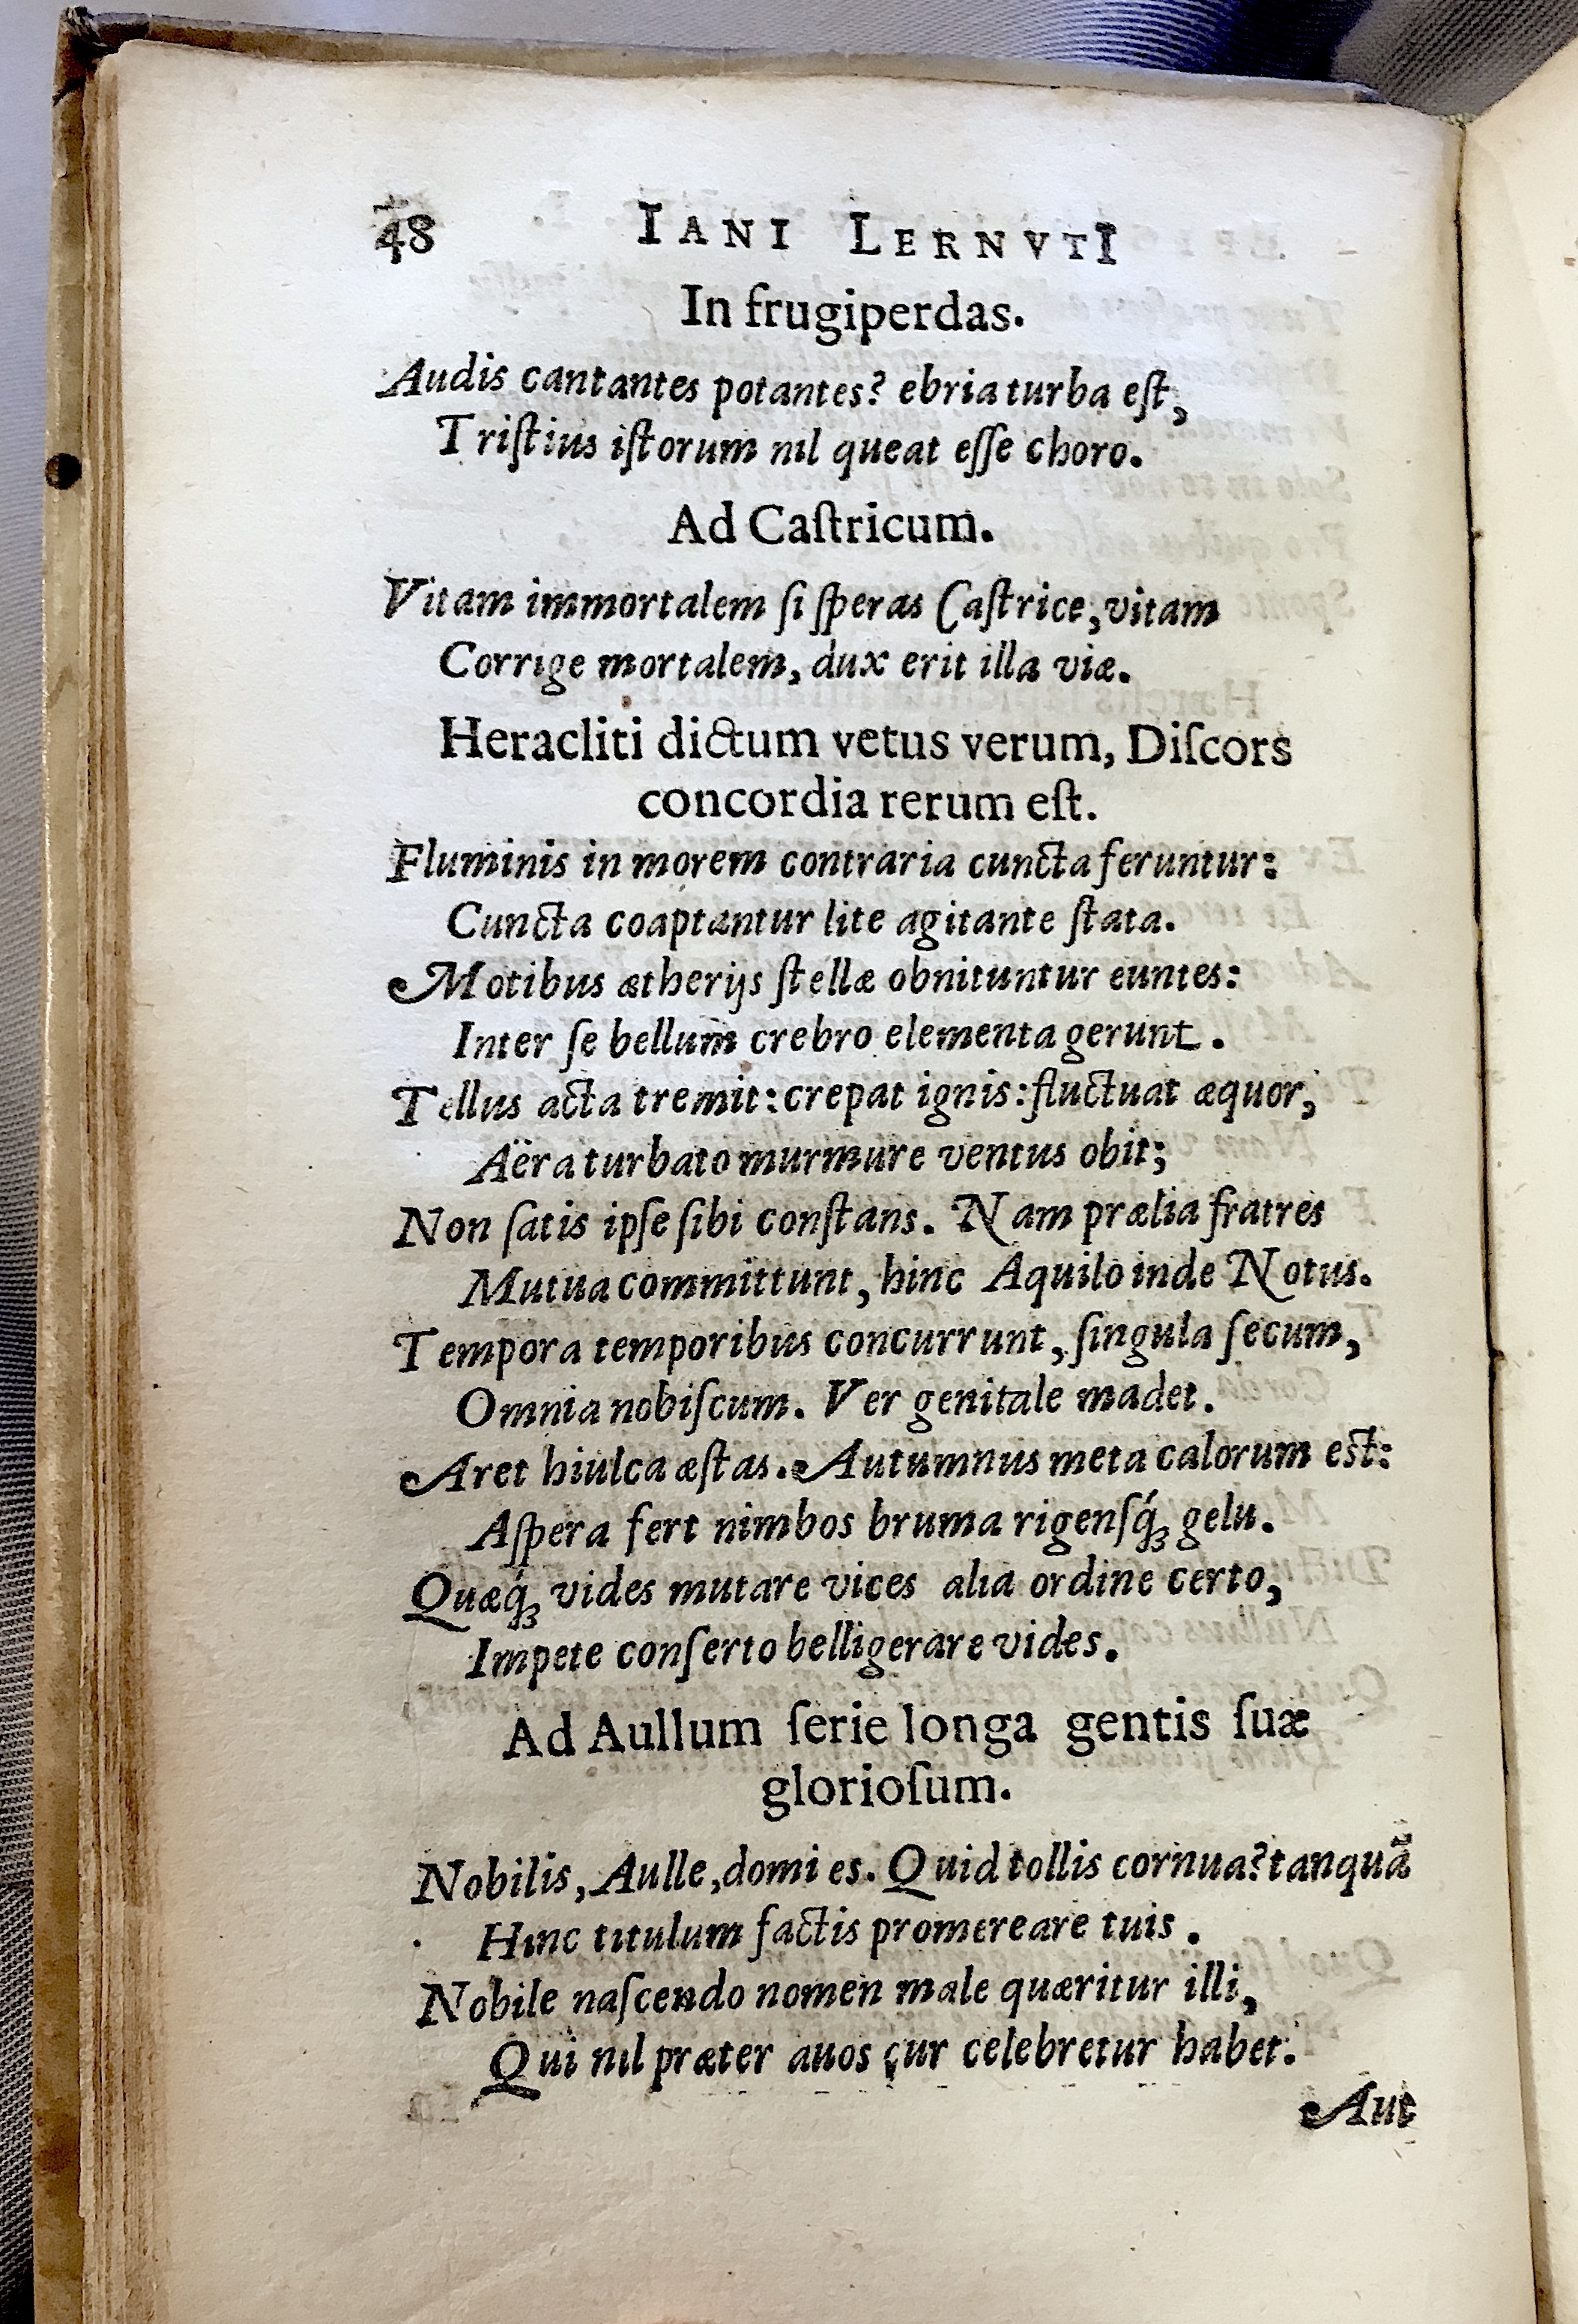 48 IANI LERNVTI
In frugiperdas.
Audis cantantes potantes? ebria turba eſt,
Triſtius iſtorum nil queat eſſe choro.
Ad Caſtricum.
Vitam immortalem ſi ſperas Caſtrice, vitam
Corrige mortalem, dux erit illa viæ.
Heracliti dictum vetus verum, Diſcors
concordia rerum eſt.
Fluminis in morem contraria cuncta feruntur:
Cuncta coaptantur lite agitante ſtata.
Motibus ætherijs ſtellæ obnituntur euntes:
Inter ſe bellum crebro elementa gerunt.
Tellus acta tremit: crepat ignis: fluctuat æquor,
Aëra turbato murmure ventus obit;
Non ſatis ipſe ſibi conſtans. Nam prælia fratres
Mutua committunt, hinc Aquilo inde Notus.
Tempora temporibus concurrunt, ſingula ſecum,
Omnia nobiſcum. Ver genitale madet.
Aret hiulca æſtas. Autumnus meta calorum est:
Aſpera fert nimbos bruma rigenſq́ꝫ gelu.
Quæq́ꝫ vides mutare vices alia ordine certo,
Impete conſerto belligerare vides.
Ad Aullum ſerie longa gentis ſuæ
glorioſum.
Nobilis, Aulle, domi es. Quid tollis cornua? tanquã
Hinc titulum factis promereare tuis.
Nobile naſcendo nomen male quæritur illi,
Qui nil præter auos cur celebretur habet.
Aut